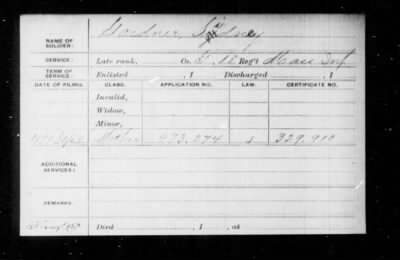 NAME OF SOLDIER: Gardner, Sydney
SERVICE: Late rank, Co. D, 18 Reg't Mass Inf.
TERM OF SERVICE: Enlisted , 1 Discharged , 1
DATE OF FILING. CLASS. APPLICATION NO. LAW. CERTIFICATE NO.
Invalid,
Widow,
Minor,
Mother 473.274 329.910
ADDITIONAL SERVICES:
REMARKS:
Died , 1 , at